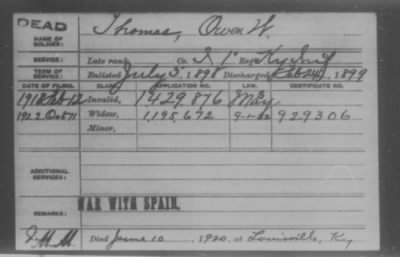 DEAD
NAME OF SOLDIER: Thomas, Owen W.
SERVICE: Late rank, Co. I 1" Reg't Ky Inf
TERM OF SERVICE: Enlisted July 5, 1898 Discharged Feb 24, 1899
DATE OF FILING. CLASS. APPLICATION NO. LAW. CERTIFICATE NO.
1918 Feb 12 Invalid, 1429,876
1922 Oct 11 Widow, 1,195,672 9-1-22 929306
Minor,
ADDITIONAL SERVICES:
WAR WITH SPAIN.
REMARKS:
Died June 10, 1920, at Louisville, Ky